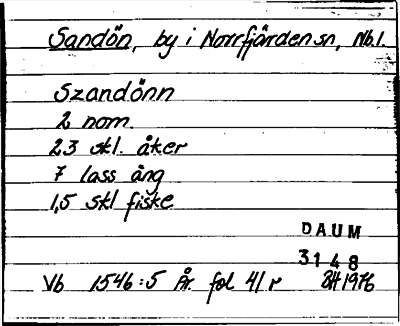 Sandön, by i Norrfjärden sn, Nb l.
Szandönn
2 nom.
23 skl. åker
7 lass äng
1,5 skl fiske
DAUM
3148
Vb 1546:5 År. fol 41 r BH 1976